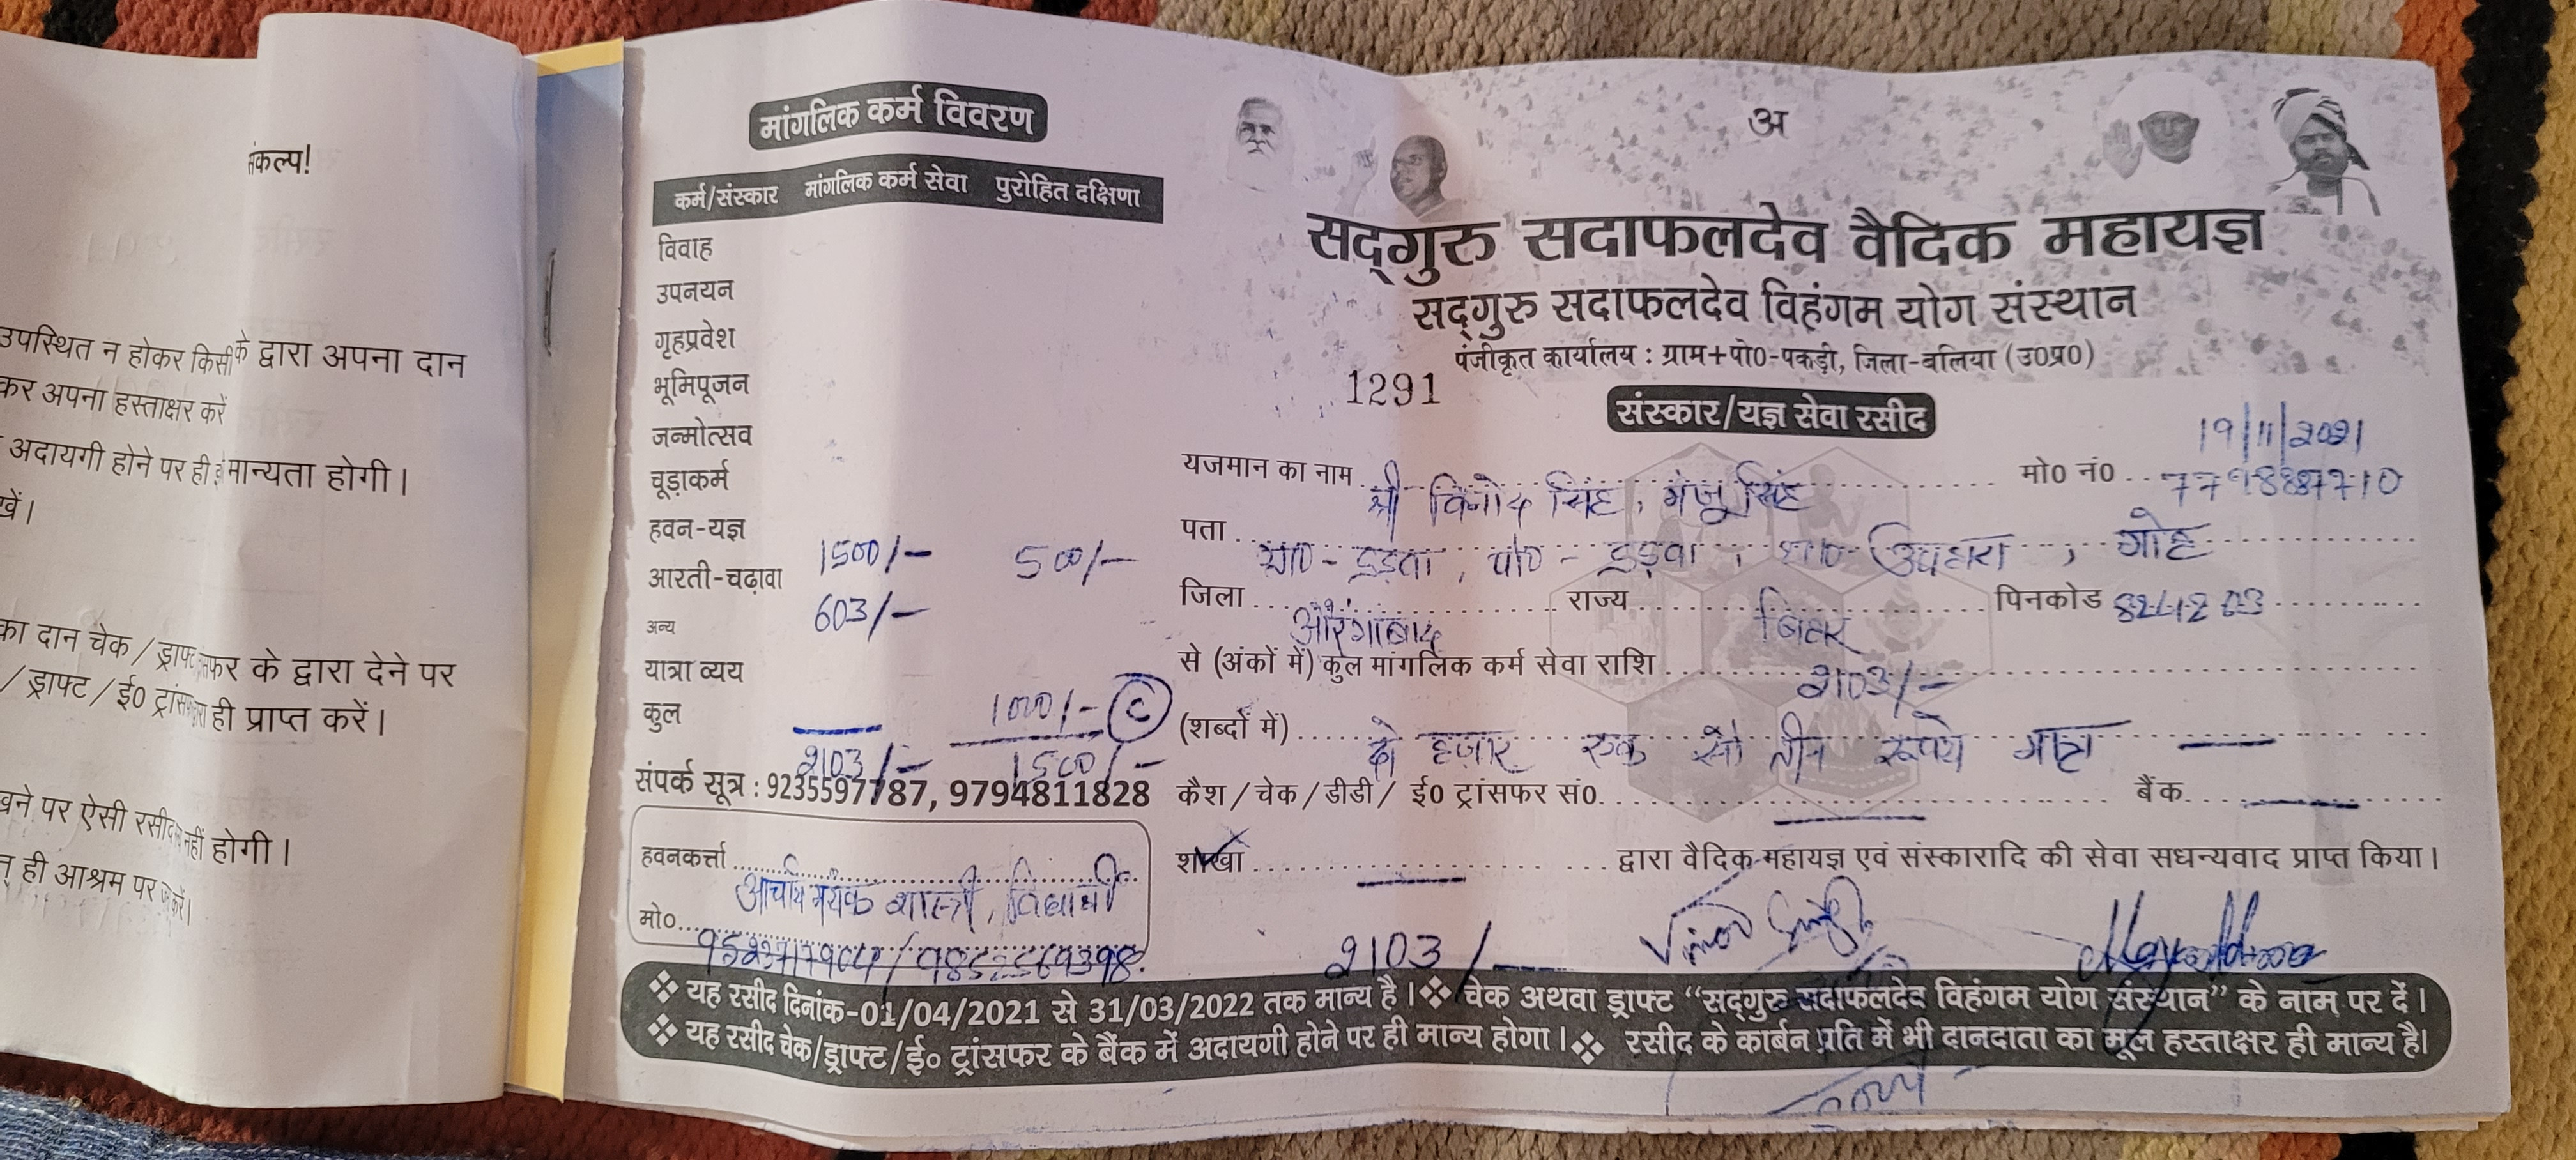 संकल्प!
उपस्थित न होकर किसी के द्वारा अपना दान
कर अपना हस्ताक्षर करें
अदायगी होने पर ही मान्यता होगी।
का दान चेक / ड्राफ्ट के द्वारा देने पर
/ ड्राफ्ट / ई० ही प्राप्त करें।
पर ऐसी रसीद नहीं होगी।
ही आश्रम पर
मांगलिक कर्म विवरण
कर्म/संस्कार मांगलिक कर्म सेवा पुरोहित दक्षिणा
विवाह
उपनयन
गृहप्रवेश
भूमिपूजन
जन्मोत्सव
चूड़ाकर्म
हवन-यज्ञ 1500/- 500/-
आरती-चढ़ावा 603/-
अन्य
यात्रा व्यय 1000/- C
कुल 2103/- 1500/-
संपर्क सूत्र : 9235597787, 9794811828
हवनकर्त्ता आचार्य मयंक शास्त्री, विद्यार्थी
मो०
अ
सद्गुरु सदाफलदेव वैदिक महायज्ञ
सद्गुरु सदाफलदेव विहंगम योग संस्थान
पंजीकृत कार्यालय : ग्राम+पो0-पकड़ी, जिला-बलिया (उ0प्र0)
1291
संस्कार/यज्ञ सेवा रसीद
19/11/2021
यजमान का नाम श्री विनोद सिंह, मंजू सिंह मो0 नं0
पता पो0 - उपहारा, गोह
जिला औरंगाबाद राज्य बिहार पिनकोड 824203
से (अंकों में) कुल मांगलिक कर्म सेवा राशि 2103/-
(शब्दों में) दो हजार एक सौ तीन रूपये मात्र
कैश / चेक / डीडी / ई0 ट्रांसफर सं0 बैंक
शाखा द्वारा वैदिक महायज्ञ एवं संस्कारादि की सेवा सधन्यवाद प्राप्त किया।
2103/- Vinod Singh
❖ यह रसीद दिनांक-01/04/2021 से 31/03/2022 तक मान्य है। ❖ चेक अथवा ड्राफ्ट “सद्गुरु सदाफलदेव विहंगम योग संस्थान” के नाम पर दें।
❖ यह रसीद चेक/ड्राफ्ट/ई० ट्रांसफर के बैंक में अदायगी होने पर ही मान्य होगा। ❖ रसीद के कार्बन प्रति में भी दानदाता का मूल हस्ताक्षर ही मान्य है।